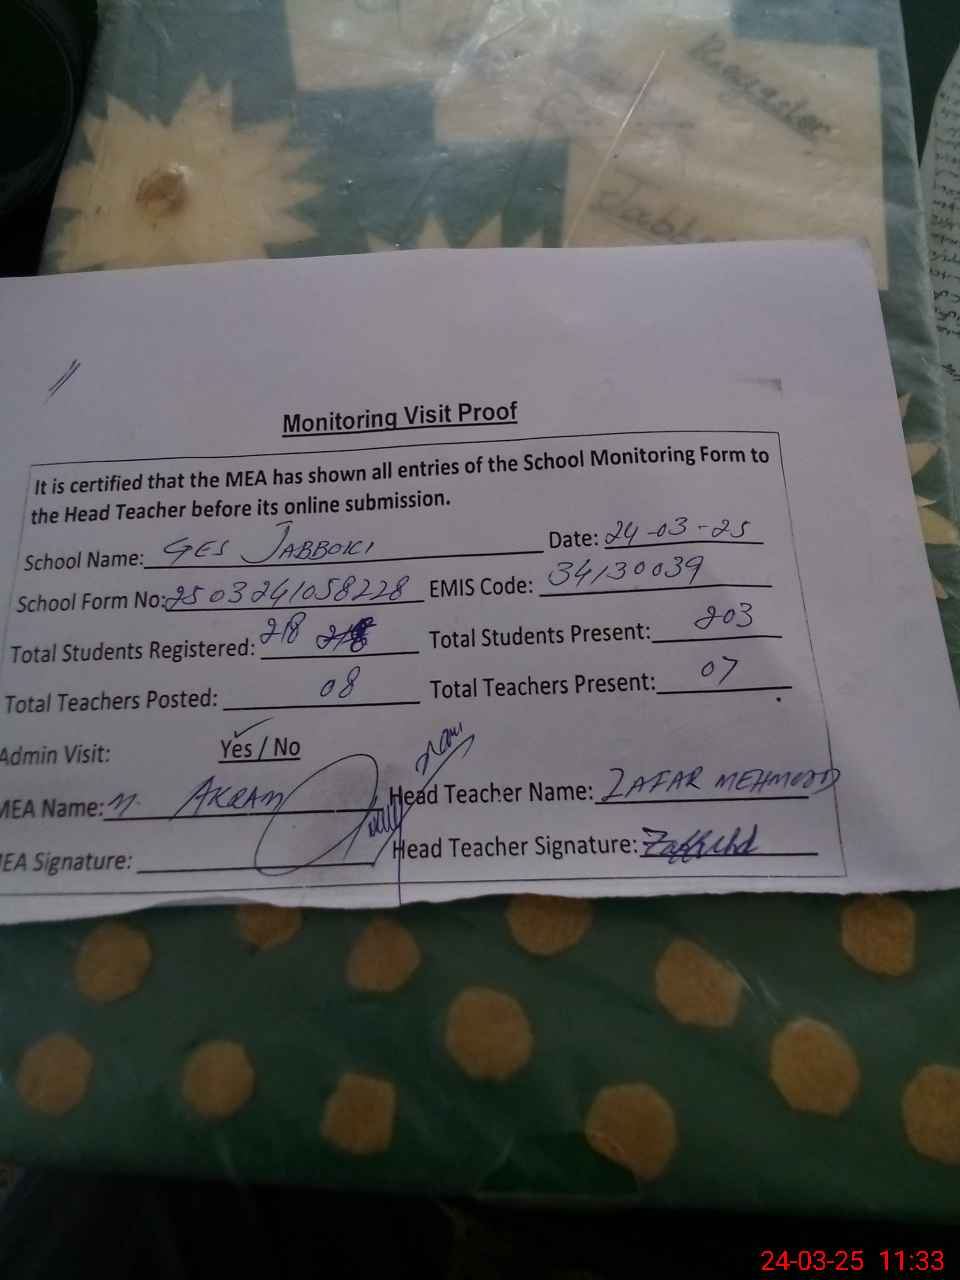 Monitoring Visit Proof
It is certified that the MEA has shown all entries of the School Monitoring Form to
the Head Teacher before its online submission.
School Name: GES JABBOKI Date: 24-03-25
School Form No: 2503241058228 EMIS Code: 34130039
Total Students Registered: 218 Total Students Present: 203
Total Teachers Posted: 08 Total Teachers Present: 07
Admin Visit: Yes / No
MEA Name: M. AKRAM Head Teacher Name: ZAFAR MEHMOOD
EA Signature: Head Teacher Signature:
24-03-25 11:33